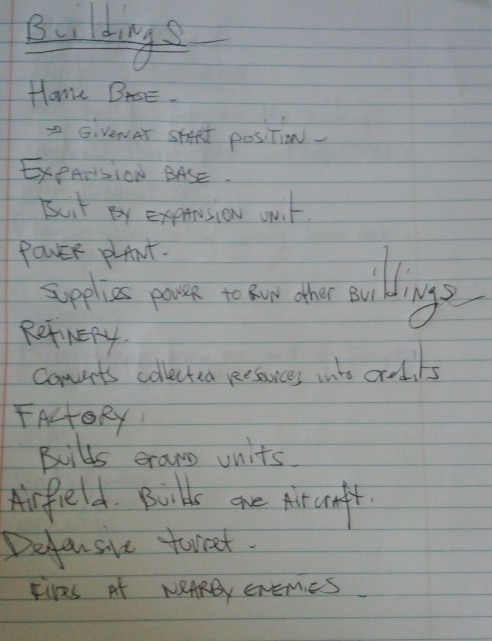 Buildings
Home BASE -
→ GIVEN AT START position -
EXPANSION BASE -
Buit By EXPANSION UNIT.
POWER PLANT -
Supplies power to RUN other BUildings
REfINERY.
Converts collected resources into credits
FACTORY.
Builds GROUND units -
Airfield. Builds one Aircraft.
Defensive turret -
FIRES At NEARBY ENEMIES -